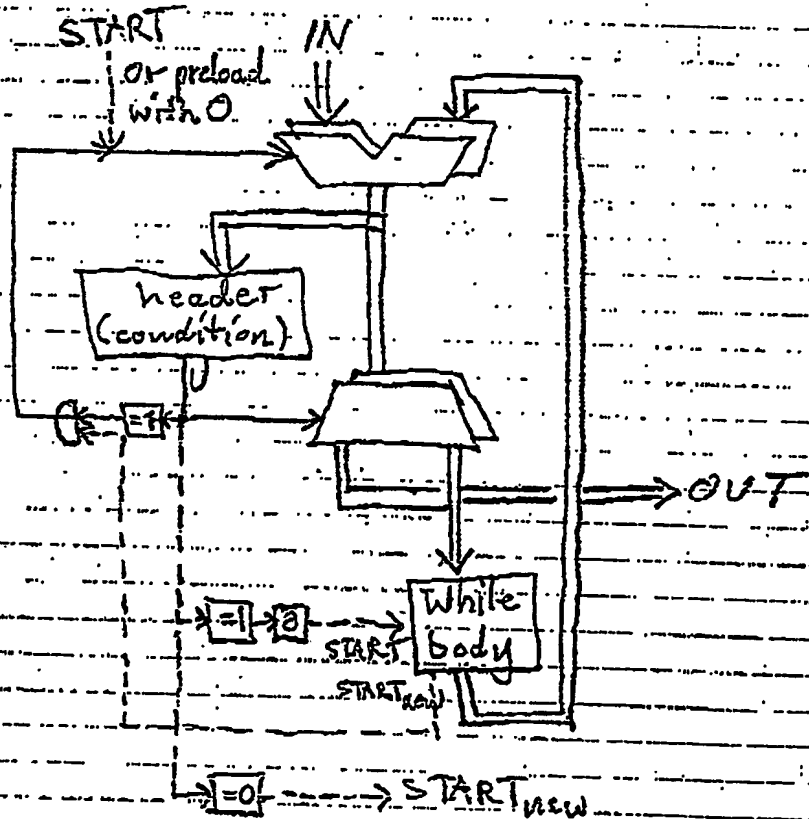 START
IN
or preload
with 0
header
(condition)
=1
OUT
=1
a
While
body
START
START new
=0
START new